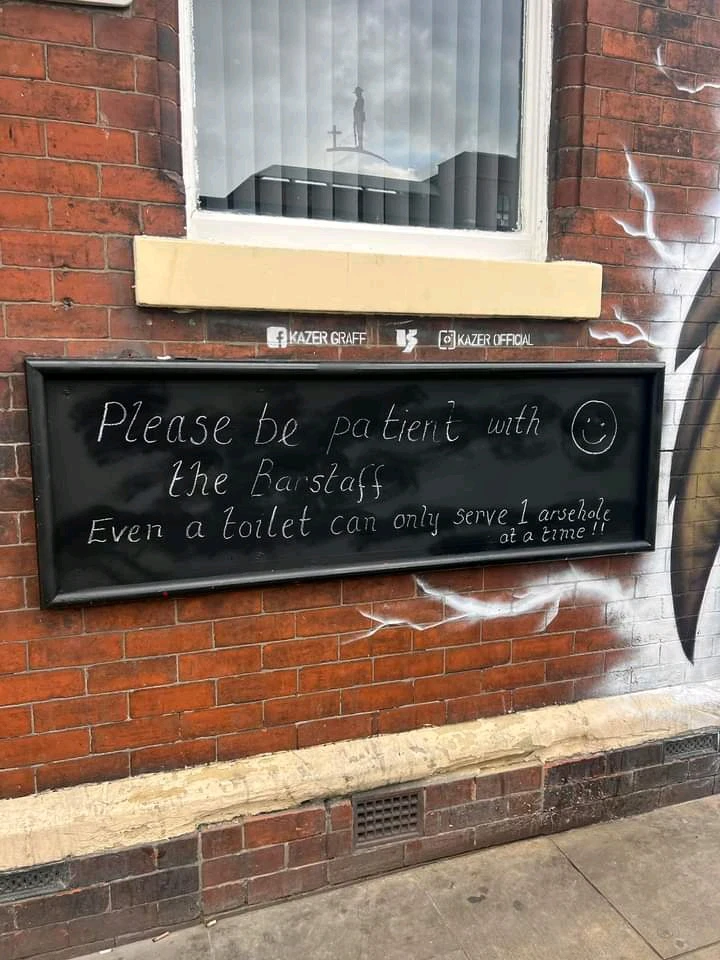 KAZER GRAFF KAZER OFFICIAL
Please be patient with
the Barstaff
Even a toilet can only serve 1 arsehole
at a time !!